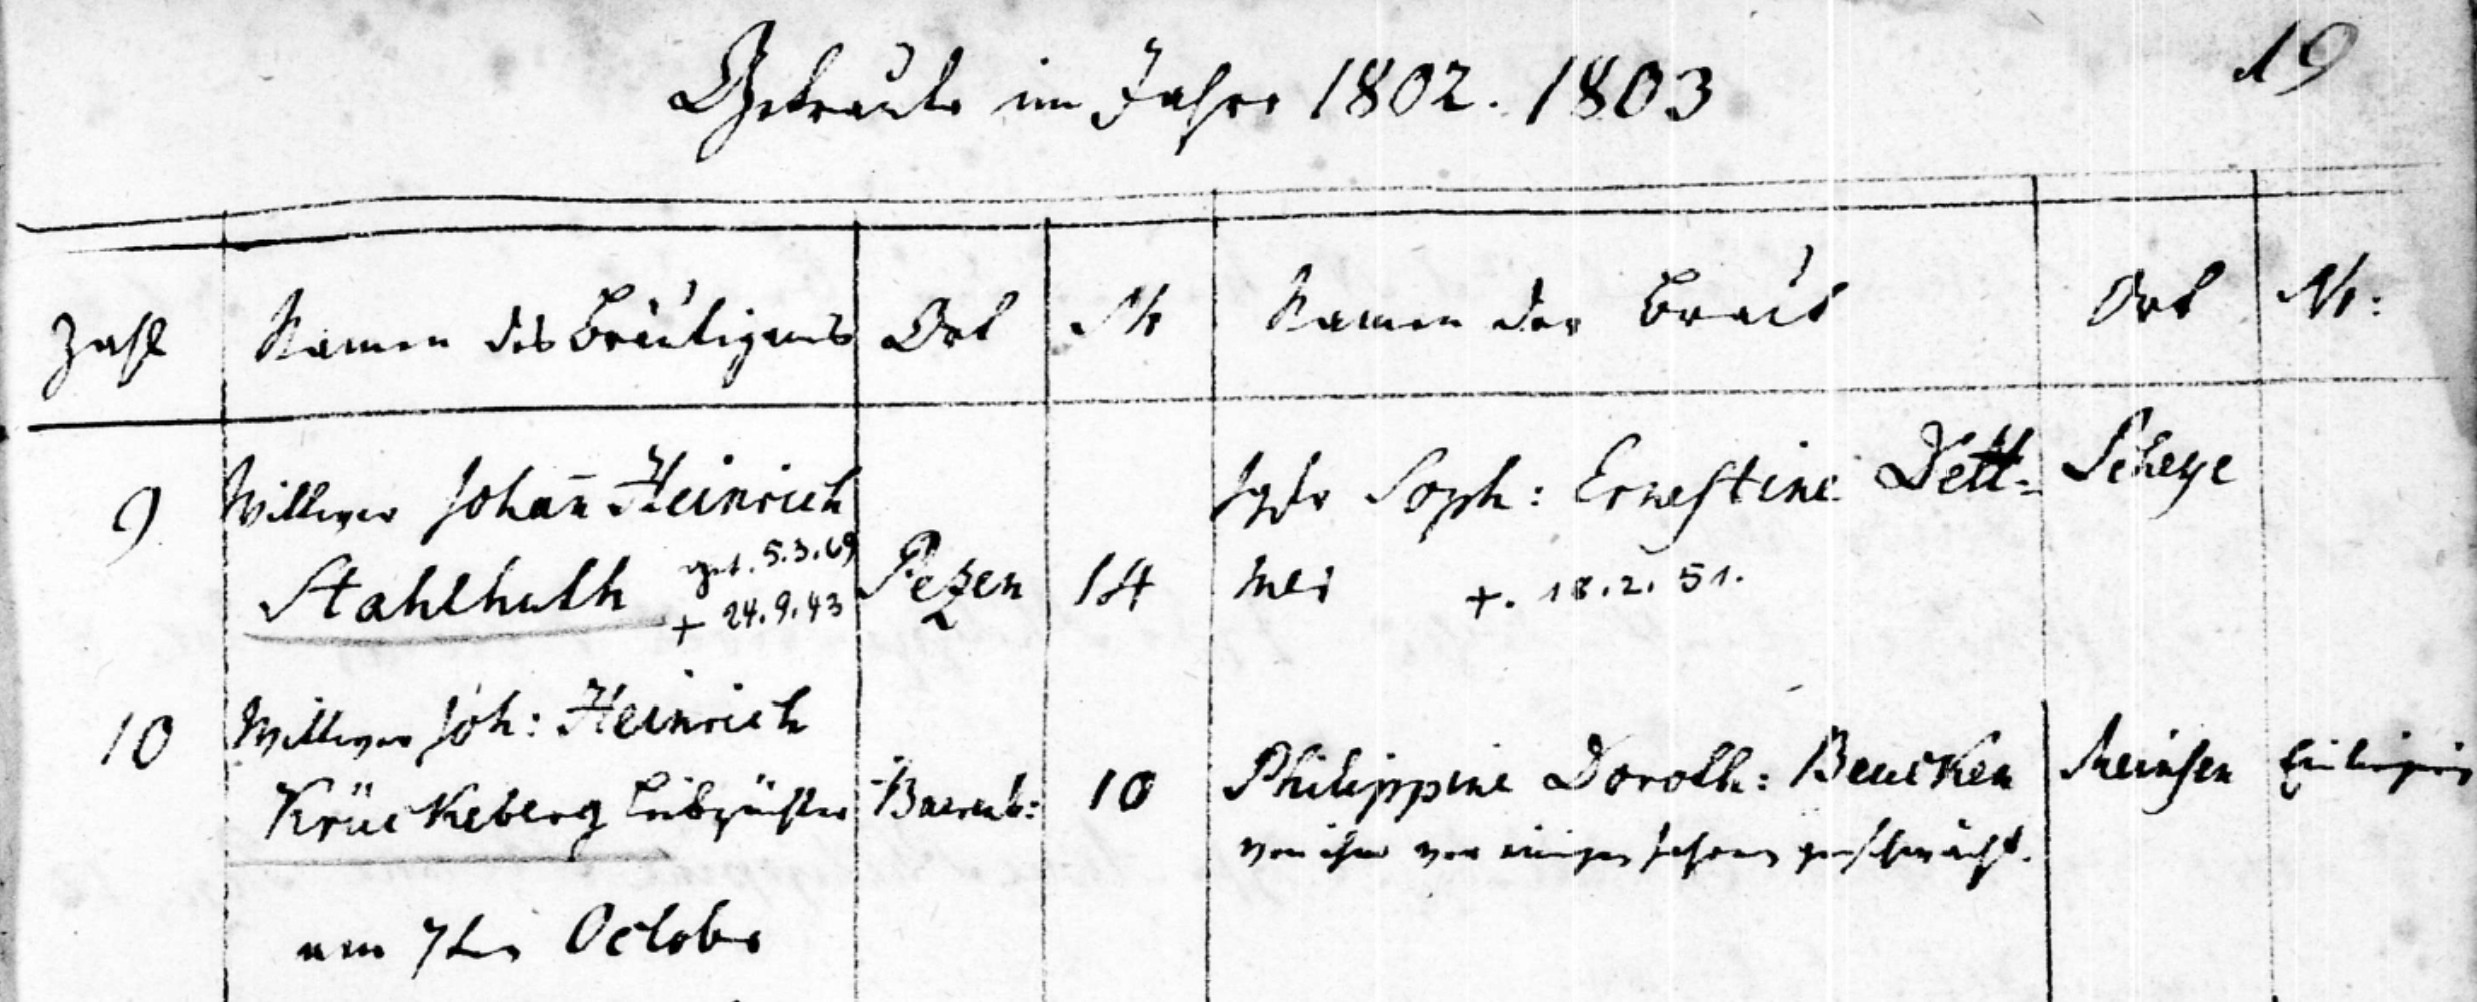 19
Getraute im Jahre 1802. 1803
Zahl Namen des Bräutigams Ort Nr Namen der Braut Ort Nr:
9 Wittwer Johan̄ Heinrich Jgfr Soph: Ernestine Dett- Scheye
Stahlhuth get. 5.3.69 Pezen 14 mer +. 18.2.51.
+ 24.9.43
10 Wittwer Joh: Heinrich
Krückeberg Leibzüchter Barenb: 10 Philippine Doroth: Beucken Meinsen
von ihm vor einigen Jahren geschwächt.
am 7ten Octobr